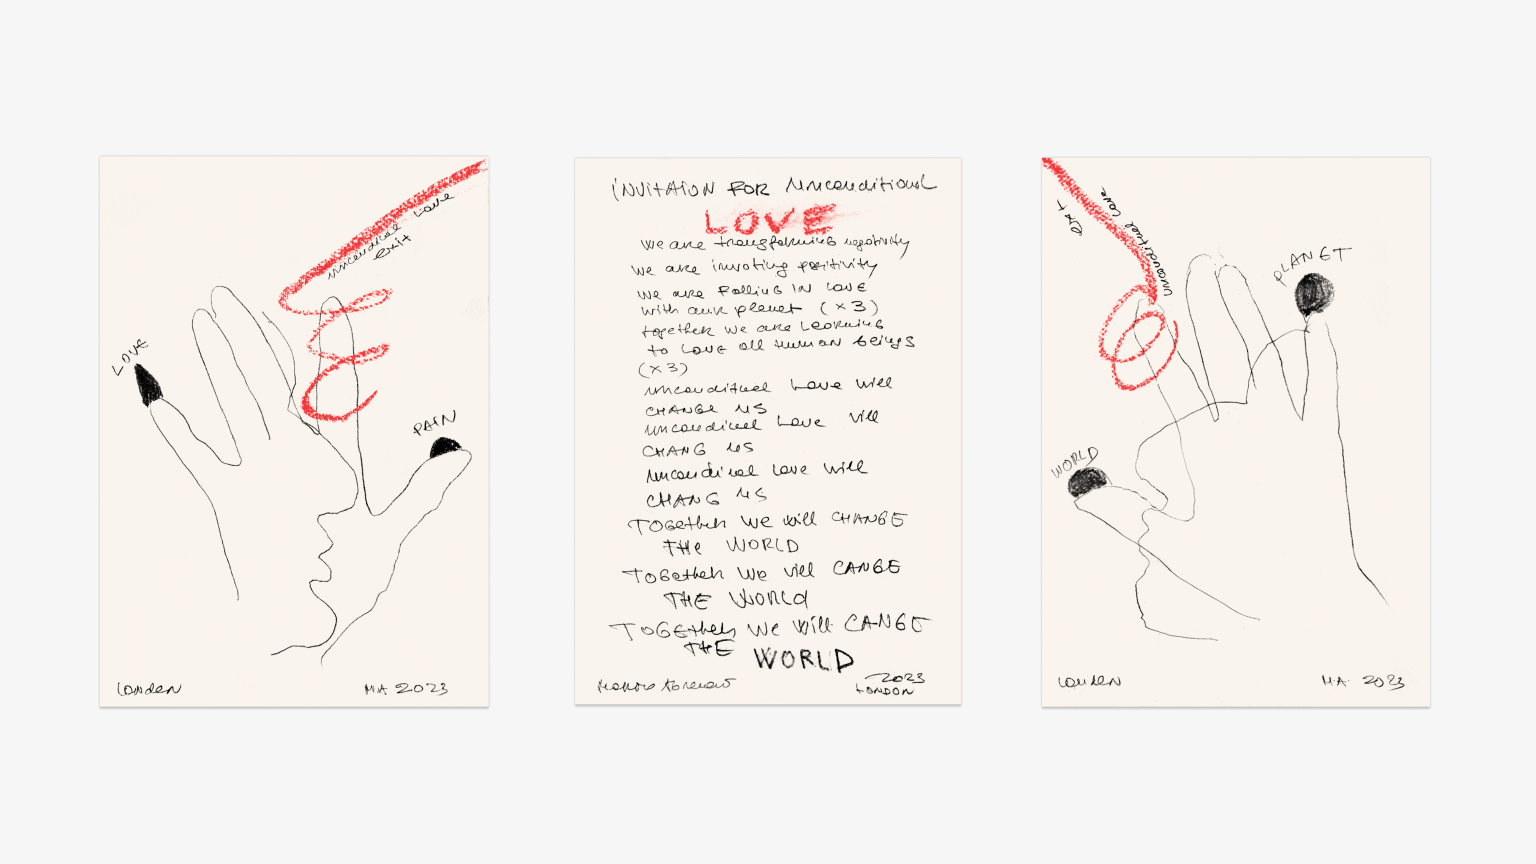 LOVE
unconditional Love
exit
PAIN
London
MA 2023
iNVitAiON FOR Unconditional
LOVE
We are transforming negativity
We are invoting positivity
We are Falling IN LOVE
with our planet (x3)
together We are Learning
to LOVE all Human Beings
(x3)
unconditual Love will
CHANGE US
uncondinal Love Vill
CHANG US
uncondinal Love Will
CHANG US
TOGether We will CHANGE
tHe WORLD
TOGether We vill CANGE
THE WORLd
TOGEther We Will CANGE
THE WORLD
2023
LONDON
exit
unconditual Love
PLANET
WORLD
London
M.A. 2023